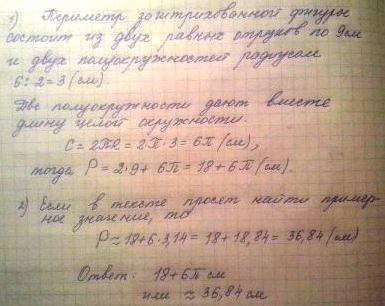 1) Периметр заштрихованной фигуры
состоит из двух равных отрезков по 9см
и двух полуокружностей радиусом
6:2=3 (см).
Две полуокружности дают вместе
длину целой окружности.
C = 2πR = 2π·3 = 6π (см),
тогда P = 2·9+ 6π = 18+6π (см).
2) Если в тексте просят найти пример-
ное значение, то
P ≈ 18+6·3,14 = 18+18,84 = 36,84 (см)
Ответ: 18+6π см
или ≈ 36,84 см